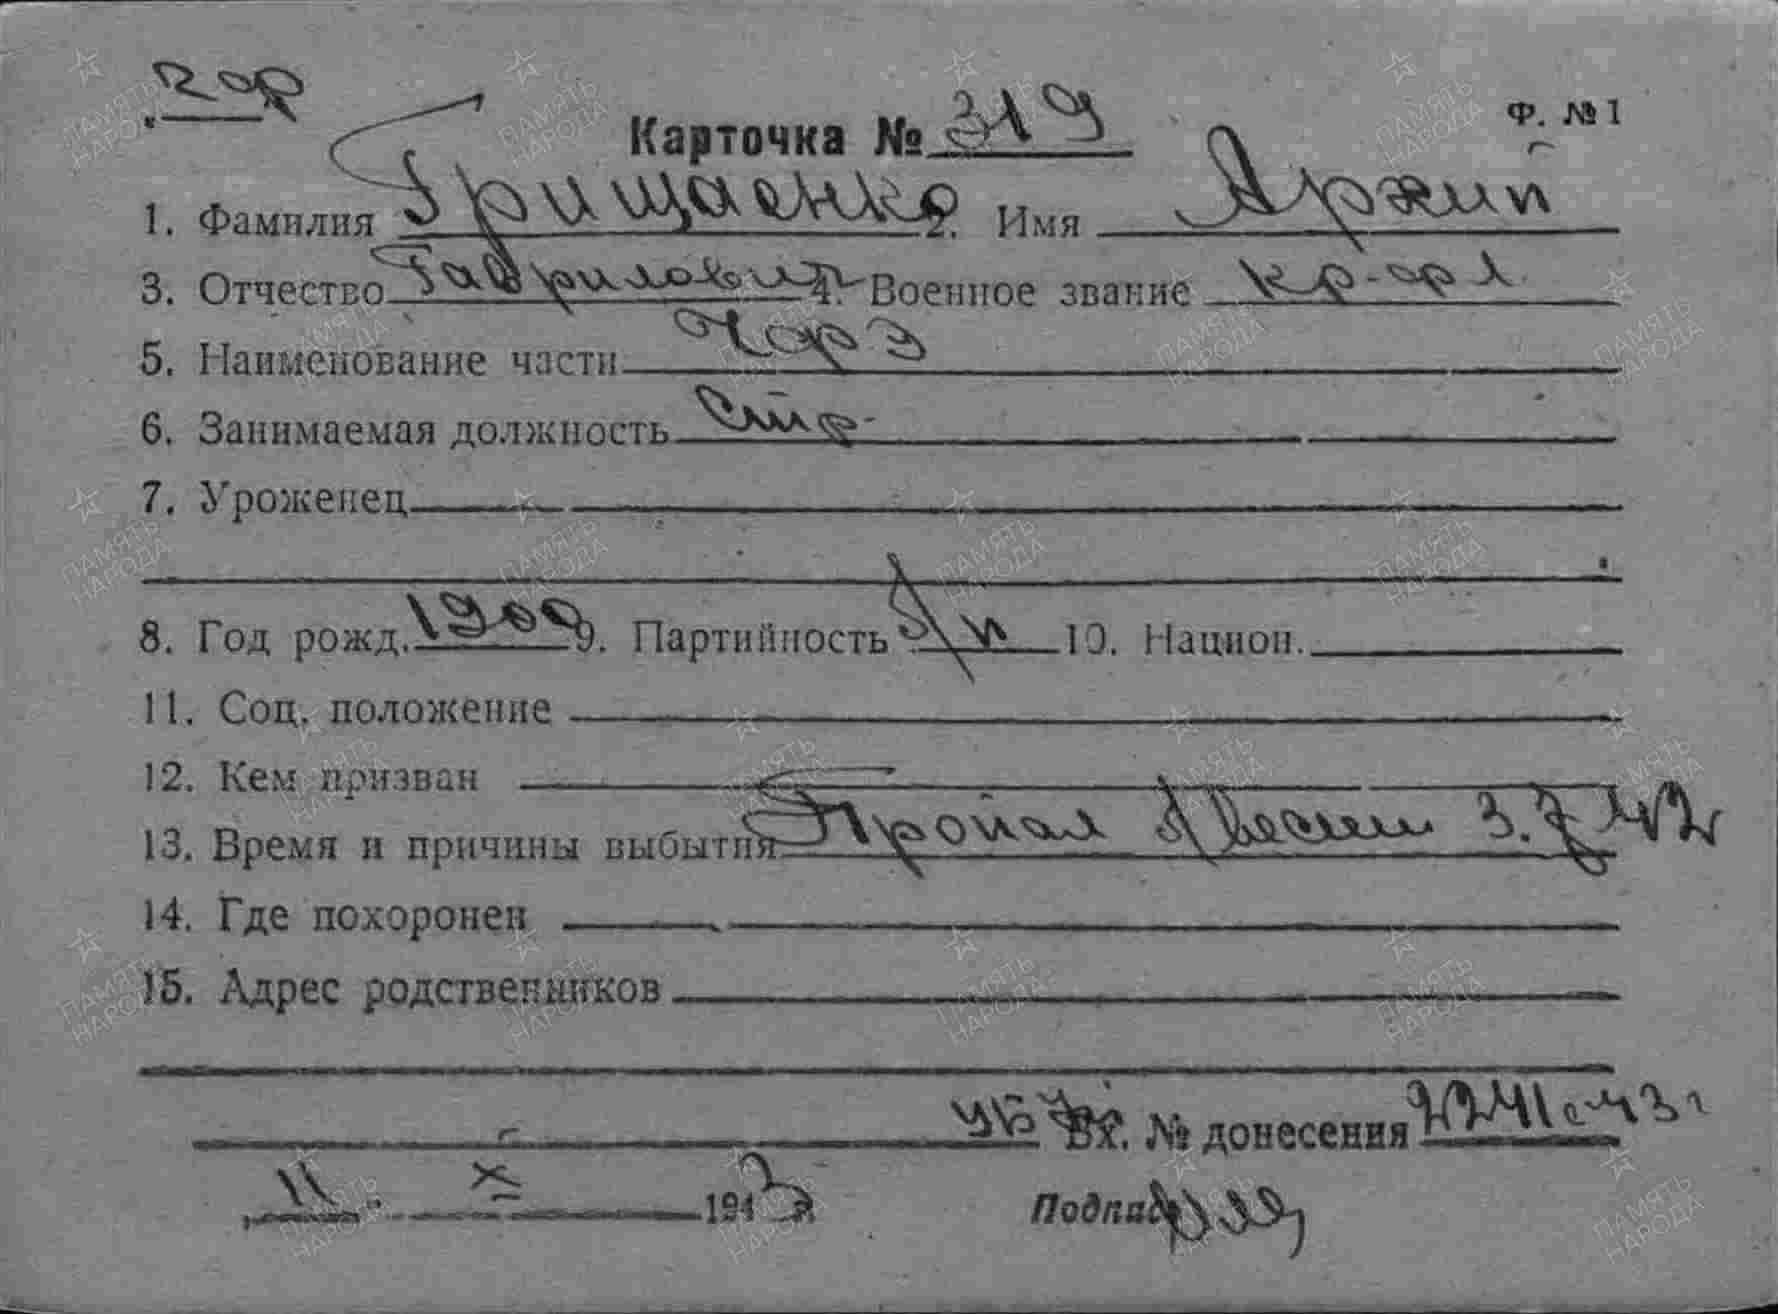 Карточка № 319 Ф. № 1
1. Фамилия Грищаенко 2. Имя Архип
3. Отчество Гаврилович 4. Военное звание кр-арм
5. Наименование части
6. Занимаемая должность стр-
7. Уроженец
8. Год рожд. 1900 9. Партийность б/п 10. Национ.
11. Соц. положение
12. Кем призван
13. Время и причины выбытия Пропал б/вести 3.7.42
14. Где похоронен
15. Адрес родственников
Вх. № донесения 22411с 43 г
11 X 1943 Подпись
ПАМЯТЬ НАРОДА